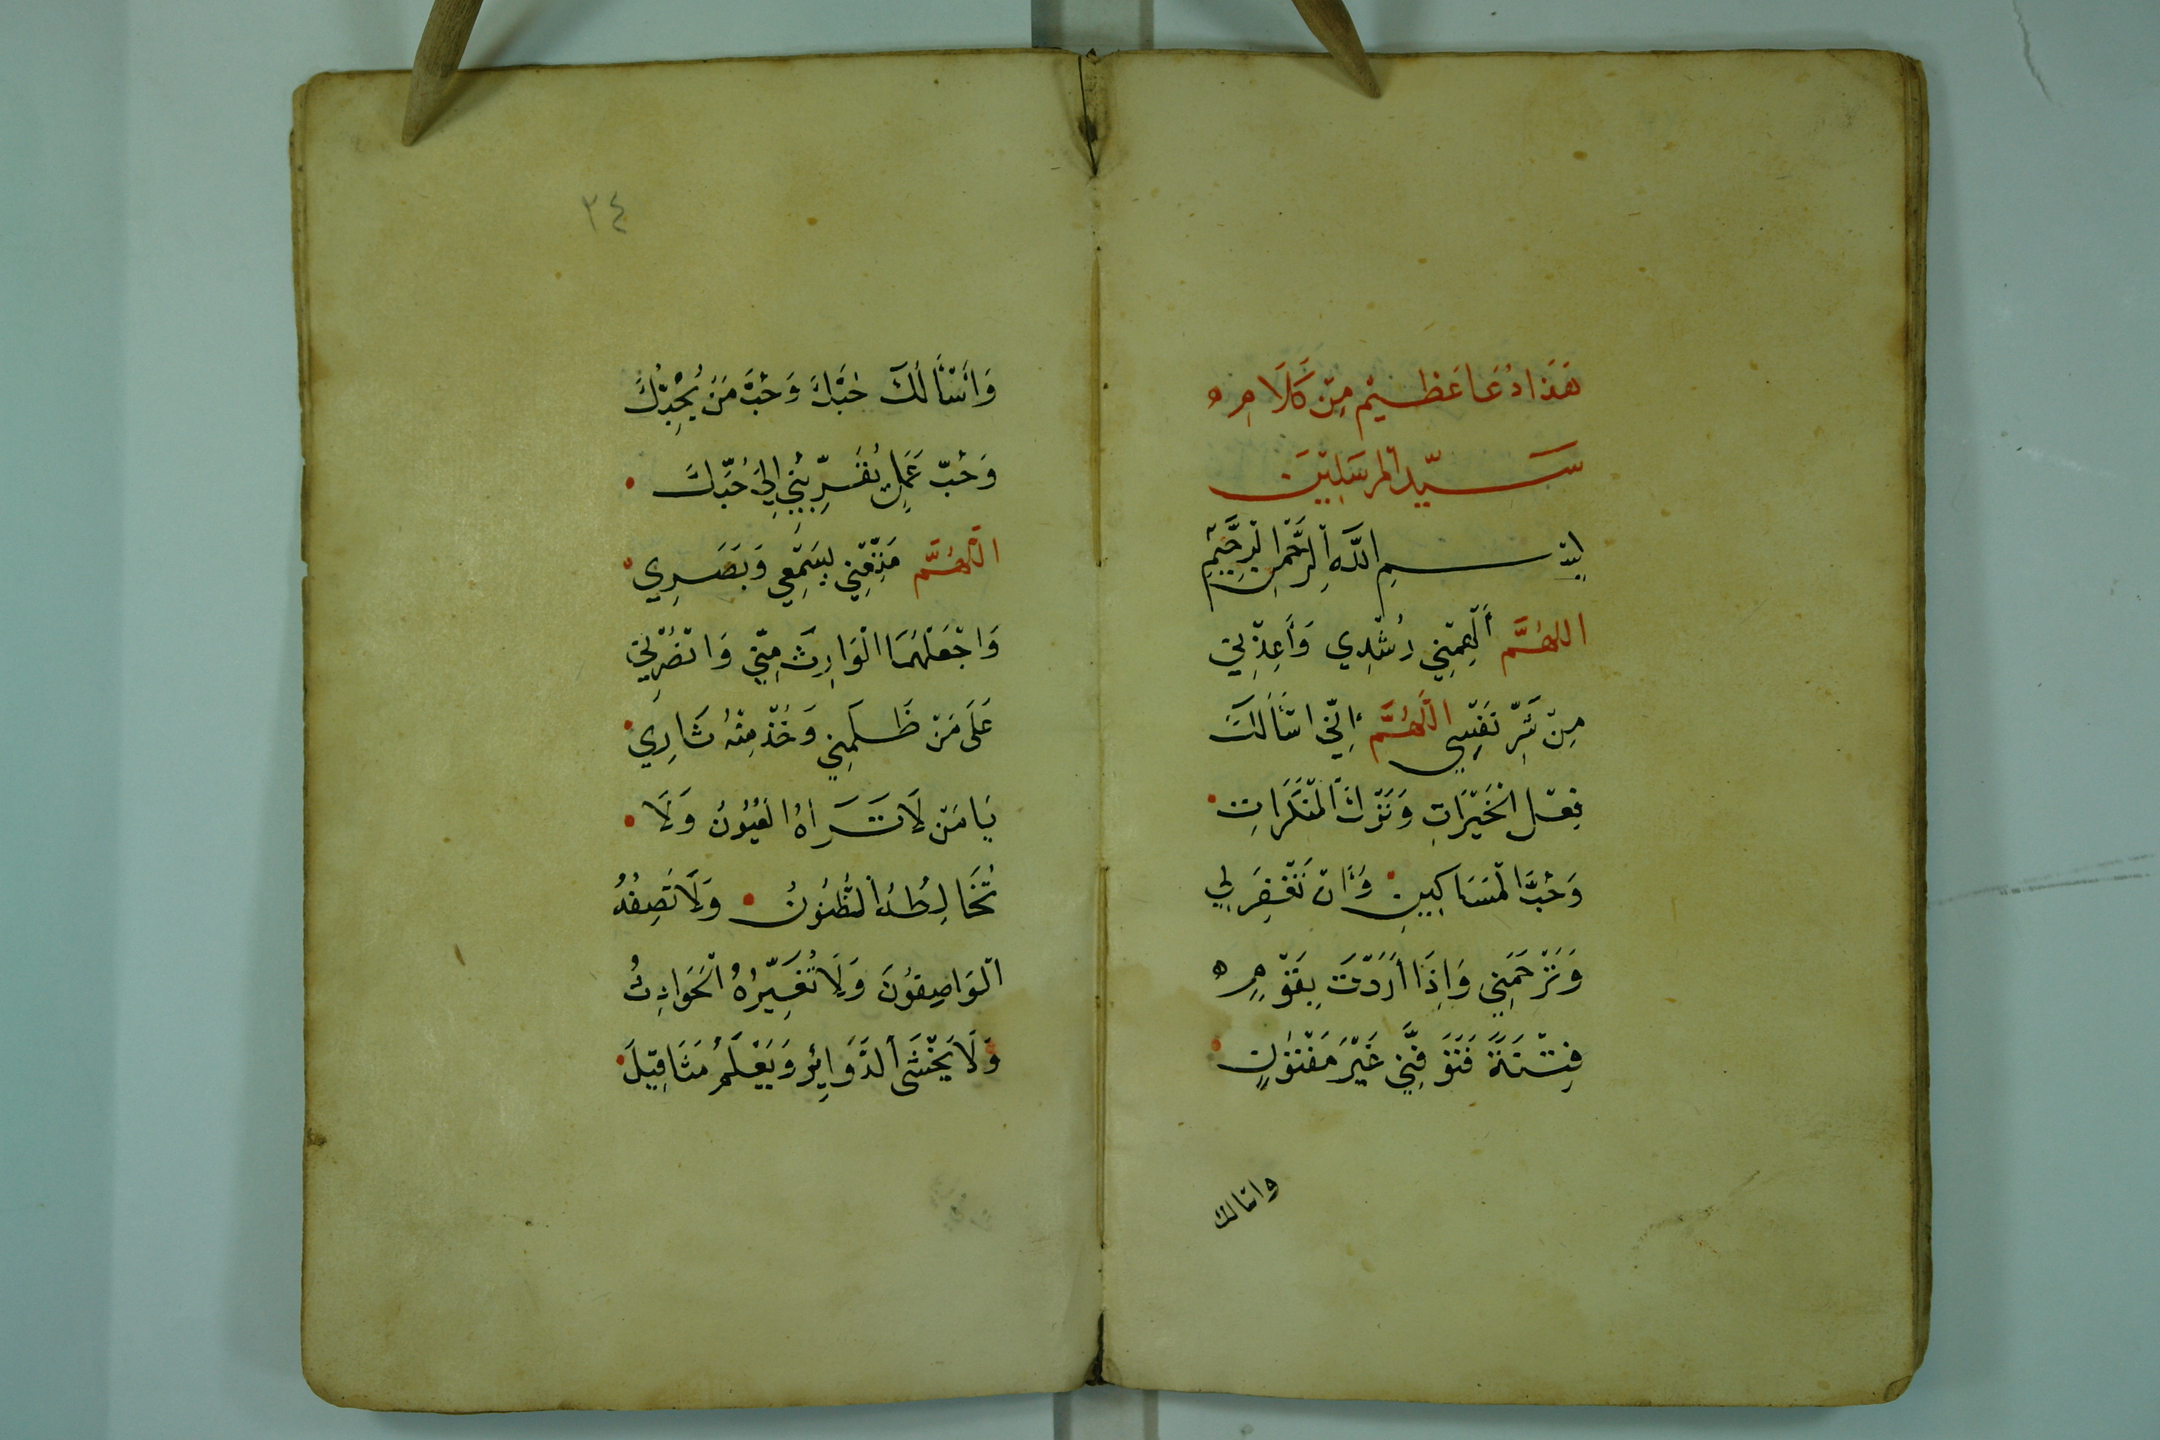 هَذَا دُعَا عَظِيْم مِنْ كَلَامِ
سَيّدِ اْلمرسَلِيْنَ
بِسْمِ اللَّهِ اْلرَّحْمنِ اْلرَّحِيْمِ
اللهُمَّ أَلْهِمْنِي رُشْدِي وَأَعِذْنِي
مِنْ شَرِّ نَفْسِي اللَّهُمَّ إِنِّي اسْأَلُكَ
فِعْل الْخَيْرَاتِ وَتَرْكَ اْلمنْكَرَاتِ
وَحُبَّ الْمَسَاكِينِ وَأَنْ تَغْفِرَ لِي
وَتَرْحَمَنِي وَإِذَا أَرَدْتَ بِقَوْمٍ
فِتْنَةً فَتَوَفَّنِي غَيْرَ مَفْتُوْنٍ
واسالك
٢٤
وَأَسْأَلُكَ حُبَّكَ وَحُبَّ مَنْ يُحِبُّكَ
وَحُبّ عَمَلٍ يُقَرِّبُنِي إِلَى حُبِّكَ
اللَّهُمَّ مَتِّعْنِي بِسَمْعِي وَبَصَرِي
وَاجْعَلْهُمَا الْوَارِثَ مِنِّي وَانْصُرْنِي
عَلَى مَنْ ظَلَمَنِي وَخُذْ مِنْهُ ثَارِي
يَا مَنْ لَا تَرَاهُ الْعُيُونُ وَلَا
تُخَالِطُهُ اْلظُّنُونُ وَلَا تَصِفُهُ
الْوَاصِفُونَ وَلَا تُغَيِّرُهُ الْحَوَادِثُ
وَلَا يَخْشَى اْلدَّوَائِرَ وَيَعْلَمُ مَثَاقِيْلَ